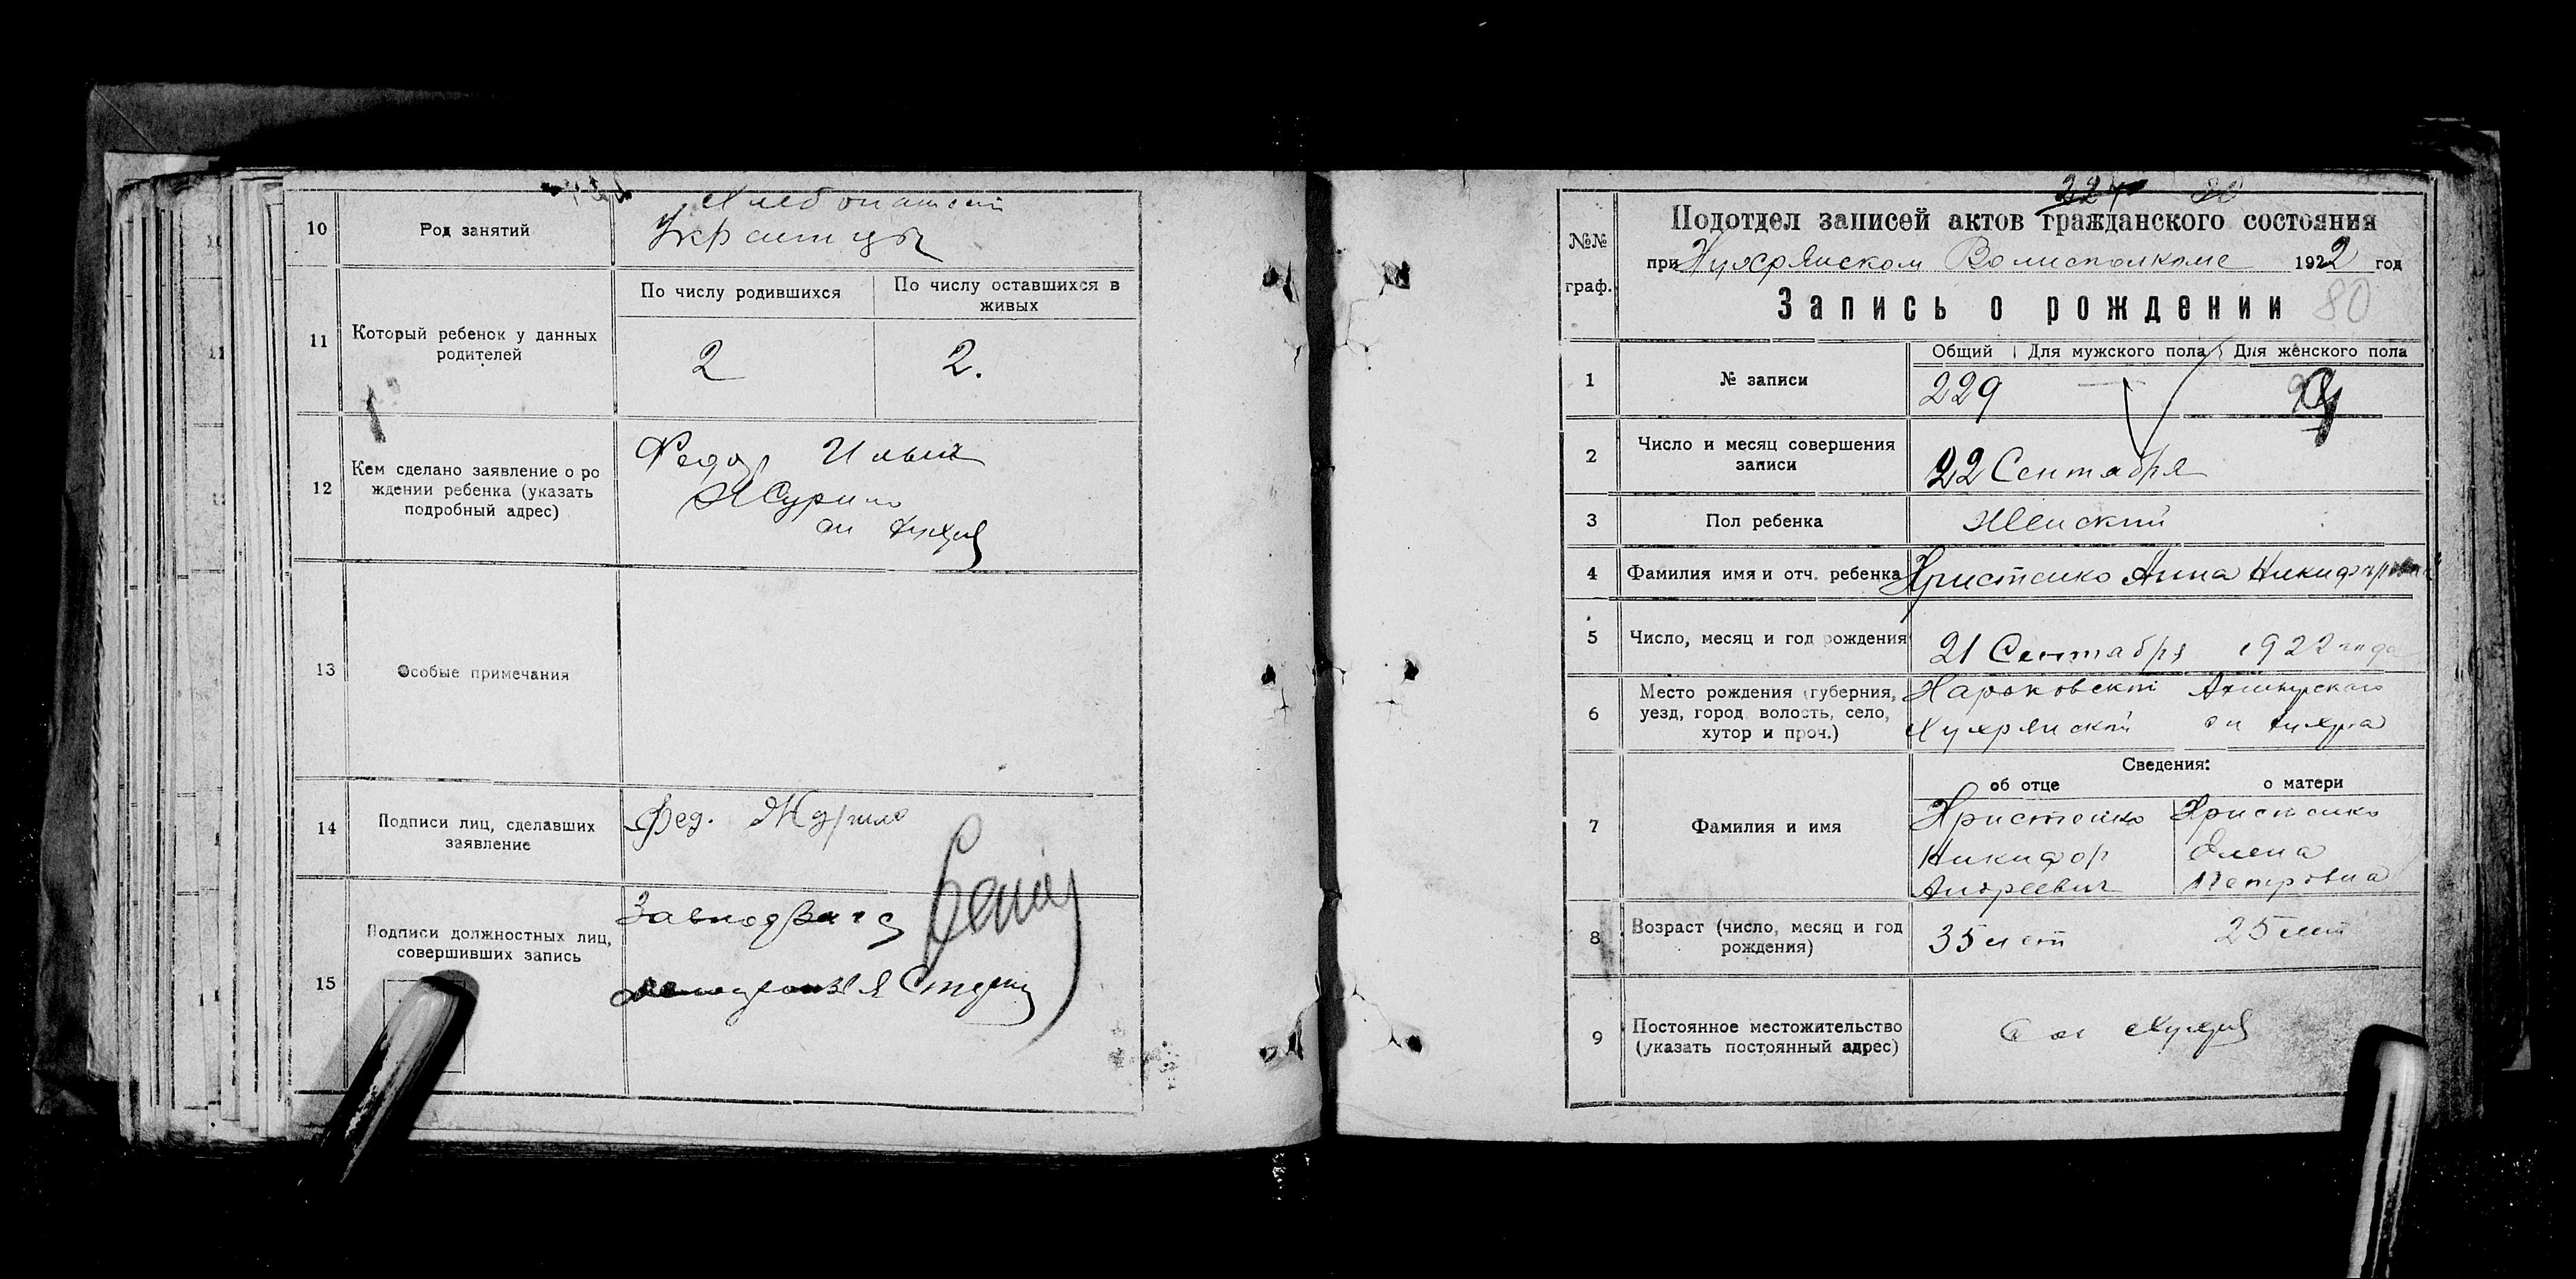 10
Род занятий
Хлебопашест
Украинцы
11
Который ребенок у данных
родителей
По числу родившихся
По числу оставшихся в
живых
2
2.
12
Кем сделано заявление о ро
ждении ребенка (указать
подробный адрес)
Федор Ильич
Журило
сл Хухра
13
Особые примечания
14
Подписи лиц, сделавших
заявление
Фед. Журило
15
Подписи должностных лиц,
совершивших запись
Завподзагс
№№
граф.
227 80
Подотдел записей актов гражданского состояния
при Хухрянском Волисполкоме 1922 год
Запись о рождении 80
1
№ записи
Общий
Для мужского пола
Для женского пола
229 —
2
Число и месяц совершения
записи
22 Сентября
3
Пол ребенка
Женский
4
Фамилия имя и отч. ребенка
Христенко Анна Никифоровна
5
Число, месяц и год рождения
21 Сентября 1922 года
6
Место рождения (губерния,
уезд, город волость, село,
хутор и проч.)
Харьковской Ахтырского
Хухрянской сл Хухра
7
Фамилия и имя
Сведения:
об отце
о матери
Христенко
Никифор
Андреевич
Христенко
Олена
Петровна
8
Возраст (число, месяц и год
рождения)
35 лет
25 лет
9
Постоянное местожительство
(указать постоянный адрес)
Сл Хухра